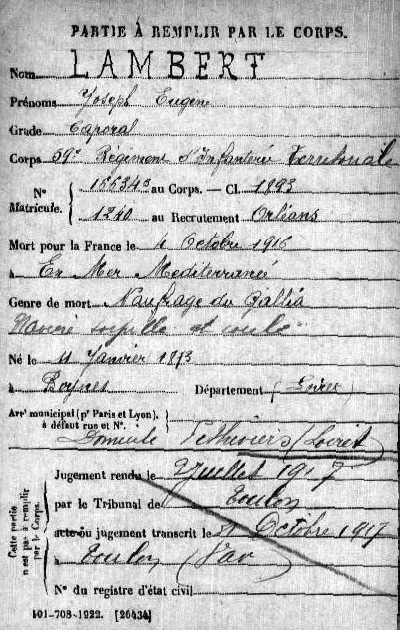 PARTIE À REMPLIR PAR LE CORPS.
Nom LAMBERT
Prénoms Joseph Eugène
Grade Caporal
Corps 59e Régiment d'Infanterie Territoriale
N° Matricule. { 15534 au Corps. — Cl. 1893
1240 au Recrutement Orléans
Mort pour la France le 4 Octobre 1916
à En Mer Mediterranée
Genre de mort Naufrage du Gallia
torpillé et coulé
Né le 11 Janvier 1873
à Département (Loiret)
Arrt municipal (pr Paris et Lyon), à défaut rue et N°.
Domicile Pithiviers (Loiret)
Cette partie n'est pas à remplir par le Corps.
Jugement rendu le Juillet 1917
par le Tribunal de Toulon
acte ou jugement transcrit le Octobre 1917
à Toulon (Var)
N° du registre d'état civil
101-708-1922. [26434]